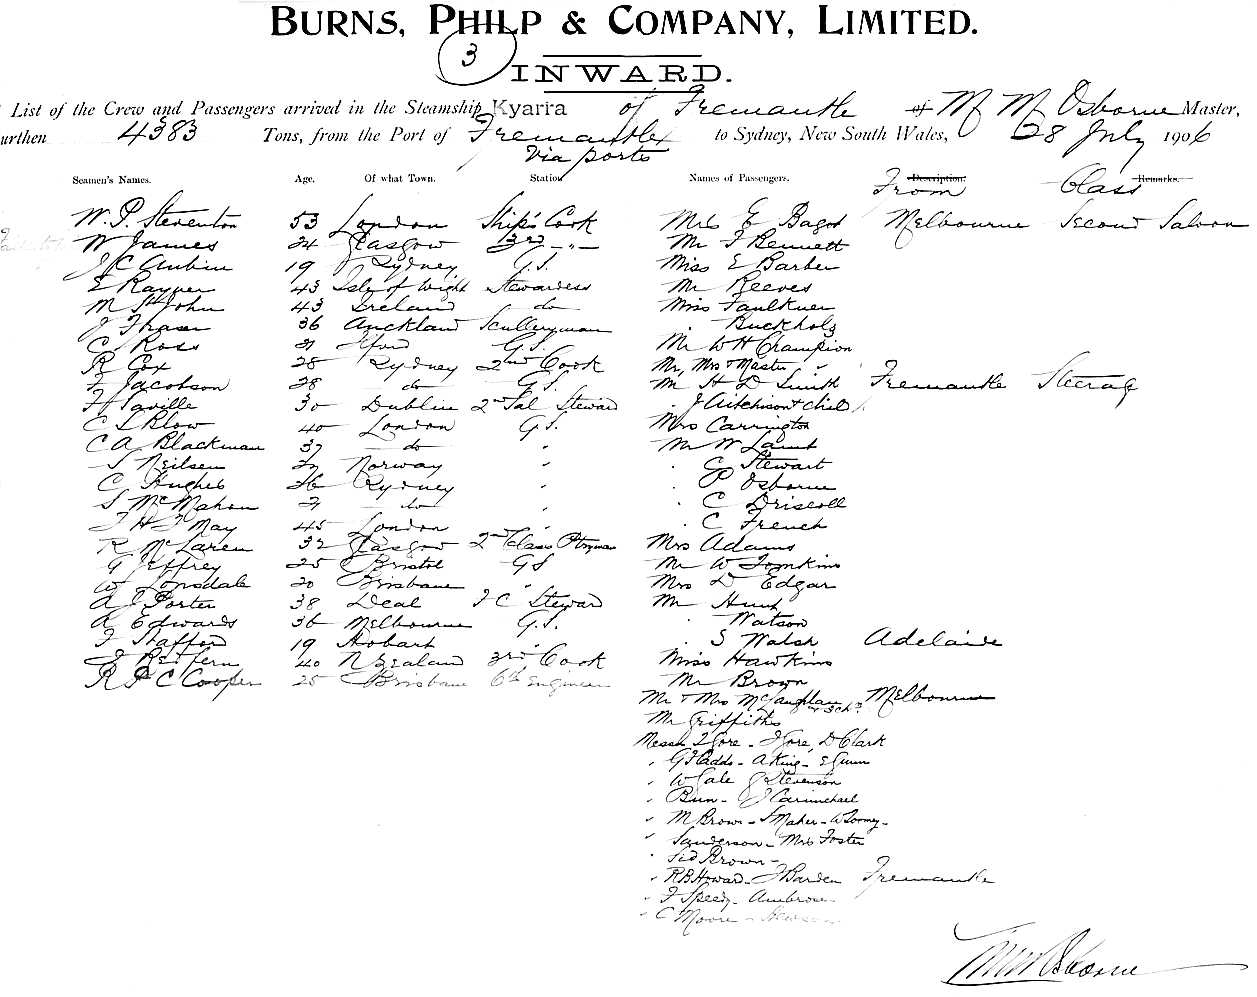 BURNS, PHILP & COMPANY, LIMITED.
3
INWARD.
List of the Crew and Passengers arrived in the Steamship Kyarra of Fremantle of M M Osborne Master,
urthen 4383 Tons, from the Port of Fremantle to Sydney, New South Wales, 28 July 1906
Via ports
Seamen's Names. Age. Of what Town. Station Names of Passengers. Description. Remarks.
From Class
W. P. Steventon 53 London Ship's Cook Mrs E Bagot Melbourne Second Saloon
W James 24 Glasgow 13rd - " - Mr F Bennett
J C Aubin 19 Sydney G.S. Miss E Barber
E Rayner 43 Isle of Wight Stewardess Mr Reeves
M St John 43 Ireland do Miss Faulkner
J Fraser 36 Auckland Sculleryman " Buckholz
C Ross 21 G.S. Mr W H Champion
R Cox 28 Sydney 2nd Cook Mr, Mrs & Master "
F Jacobson 28 do G.S. Mr H D Smith Fremantle Steerag
H Saville 30 Dublin 2nd Sal Steward " J Aitchison & child
C L Klow 40 London G.S. Mrs Carrington
C A Blackman 37 do Mr W Lamb
S Neilsen Norway " " G Stewart
C Hughes 26 Sydney " " P Osborne
S McMahon 21 do " " C Driscoll
J H J May 45 London " " C French
R McLaren 32 Glasgow 2nd Class Ptryman Mrs Adams
G Jeffrey 25 Bristol G S Mr W Tomkins
W Lonsdale 20 Brisbane " Mrs D Edgar
A J Porter 38 Deal J C Steward Mr Hunt
A Edwards 36 Melbourne G.S. " Watson
F Stafford 19 Hobart " " S Walsh Adelaide
J Redfern 40 N Zealand 3rd Cook Miss Hawkins
R F C Cooper 25 Brisbane 6th Engineer Mr Brown
Mr & Mrs McLaughlan & 3 chn Melbourne
Mr Griffiths
Messrs T Gore - J Gore, D Clark
" G F Adds - A King - E Gunn
" W Cale J Stevenson
" Bun - J Carmichael
" M Brown - S Maher - W Toomey -
" Sanderson - Mrs Foster
" Sid Brown -
" R B Howard - J Barden Fremantle
" F Speedy - Ambrose
" C Moore - Hewson
M M Osborne